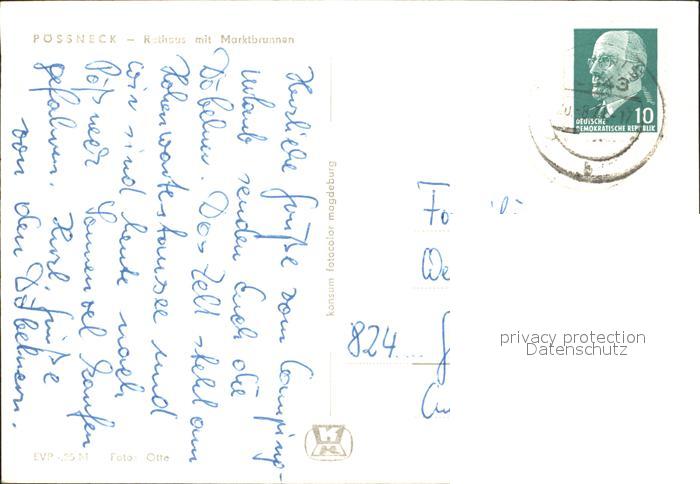 PÖSSNECK – Rathaus mit Marktbrunnen
Herzliche Grüße vom Camping-
urlaub senden Euch die
Döbelner. Das Zelt steht am
Hohenwartestausee und
wir sind heute nach
Pößneck Sonnenöl kaufen
gefahren. Herzl. Grüße
von den Döbelnern.
EVP -,25 M Foto: Otte
konsum fotocolor magdeburg
10
DEUTSCHE
DEMOKRATISCHE REPUBLIK
Fa
We
824
privacy protection
Datenschutz